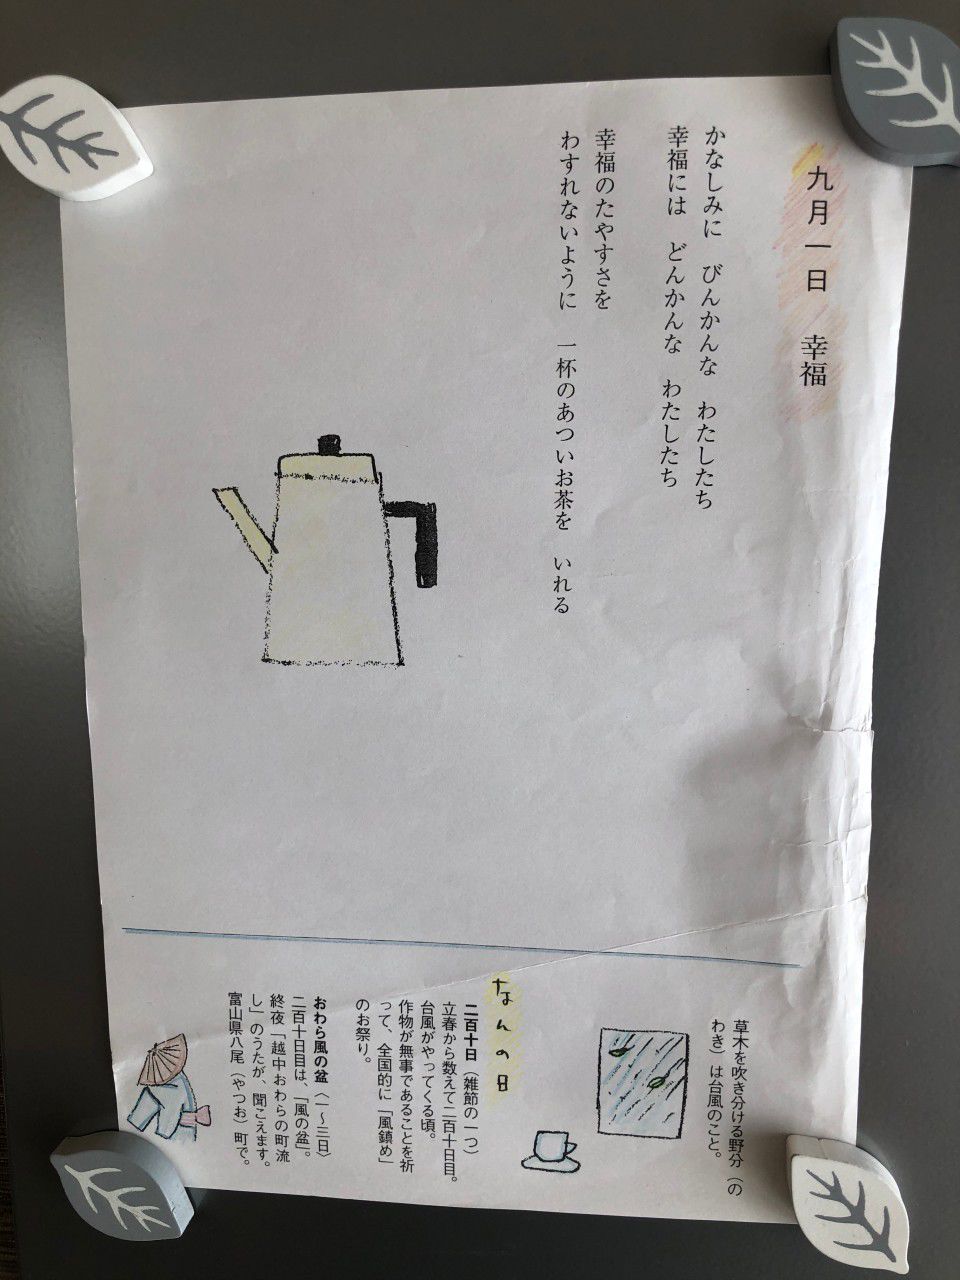 九月一日　幸福
かなしみに　びんかんな　わたしたち
幸福には　どんかんな　わたしたち
幸福のたやすさを
わすれないように　一杯のあついお茶を　いれる
草木を吹き分ける野分（の
わき）は台風のこと。
なんの日
二百十日（雑節の一つ）
立春から数えて二百十日目。
台風がやってくる頃。
作物が無事であることを祈
って、全国的に「風鎮め」
のお祭り。
おわら風の盆（一～三日）
二百十日目は、「風の盆」。
終夜「越中おわらの町流
し」のうたが、聞こえます。
富山県八尾（やつお）町で。